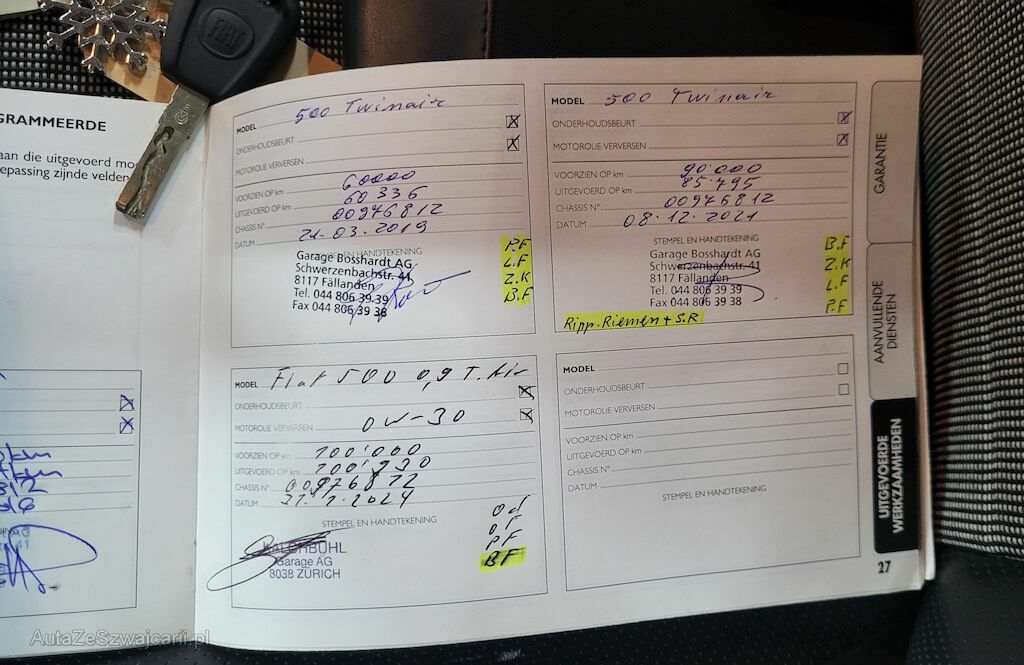 FIAT
GRAMMEERDE
aan die uitgevoerd mo
epassing zijnde velden
MODEL 500 Twinair
ONDERHOUDSBEURT
MOTOROLIE VERVERSEN
VOORZIEN OP km 60000
UITGEVOERD OP km 60336
CHASSIS N° 00976812
DATUM 21-03.2019
EN HANDTEKENING
Garage Bosshardt AG
Schwerzenbachstr. 41
8117 Fällanden
Tel. 044 806 39 39
Fax 044 806 39 38
P.F
L.F
Z.K
B.F
MODEL 500 Twinair
ONDERHOUDSBEURT
MOTOROLIE VERVERSEN
VOORZIEN OP km 90'000
UITGEVOERD OP km 85.495
CHASSIS N° 00976812
DATUM 08.12.2021
STEMPEL EN HANDTEKENING
Garage Bosshardt AG
Schwerzenbachstr. 41
8117 Fällanden
Tel. 044 806 39 39
Fax 044 806 39 38
B.F
Z.K
L.F
P.F
Ripp.Riemen + S.R
MODEL Fiat 500 0,9 T.Air
ONDERHOUDSBEURT
MOTOROLIE VERVERSEN 0W-30
VOORZIEN OP km 100'000
UITGEVOERD OP km 100'930
CHASSIS N° 00976812
DATUM
STEMPEL EN HANDTEKENING
Garage AG
8038 ZÜRICH
P.F
B.F
MODEL
ONDERHOUDSBEURT
MOTOROLIE VERVERSEN
VOORZIEN OP km
UITGEVOERD OP km
CHASSIS N°
DATUM
STEMPEL EN HANDTEKENING
GARANTIE
AANVULLENDE
DIENSTEN
UITGEVOERDE
WERKZAAMHEDEN
27
AutaZeSzwajcarii.pl